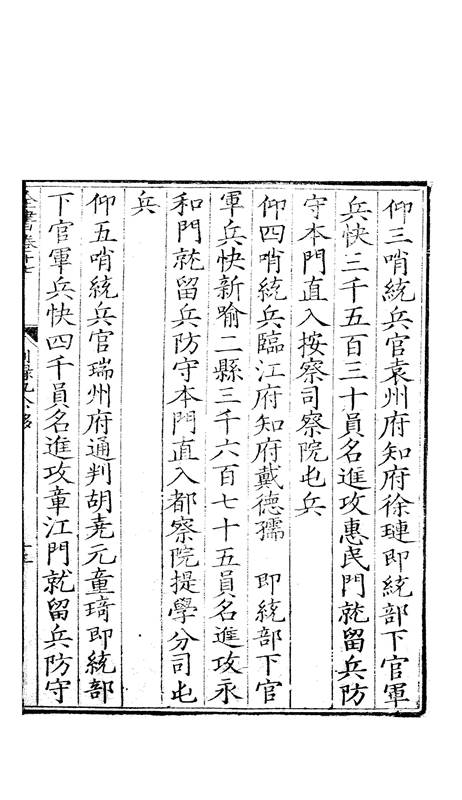 仰三哨統兵官袁州府知府徐璉即統部下官軍
兵快三千五百三十員名進攻惠民門就留兵防
守本門直入按察司察院屯兵
仰四哨統兵臨江府知府戴德孺　即統部下官
軍兵快新喻二縣三千六百七十五員名進攻永
和門就留兵防守本門直入都察院提學分司屯
兵
仰五哨統兵官瑞州府通判胡堯元童琦即統部
下官軍兵快四千員名進攻章江門就留兵防守